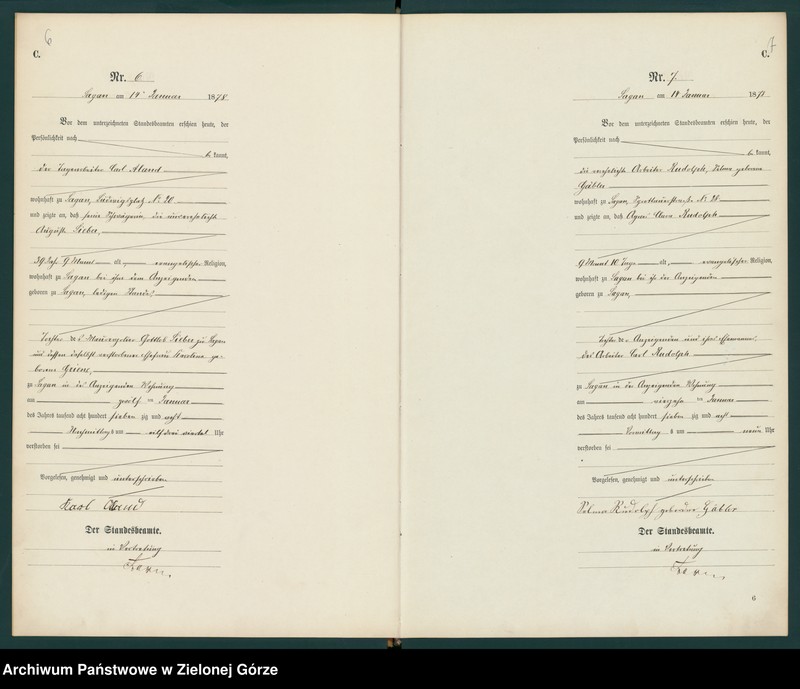 6
C.
Nr. 6
Sagan am 14 Januar 1878
Vor dem unterzeichneten Standesbeamten erschien heute, der
Persönlichkeit nach
bekannt,
der Tagearbeiter Carl Aland
wohnhaft zu Sagan, Ludwigsplatz No 20
und zeigte an, daß seine Schwägerin, die unverehelichte
August Lieber,
39 Jahr 9 Monat alt, evangelischer Religion,
wohnhaft zu Sagan bei ihm dem Anzeigenden
geboren zu Sagan, ledigen Standes,
Tochter des Gottlieb Lieber zu Sagan
und dessen daselbst verstorbener Ehefrau Caroline ge-
borene
zu Sagan in des Anzeigenden Wohnung
am zwölf ten Januar
des Jahres tausend acht hundert sieben zig und acht
Nachmittags um drei viertel Uhr
verstorben sei
Vorgelesen, genehmigt und unterschrieben
Karl Aland
Der Standesbeamte.
in Vertretung
7
C.
Nr. 7.
Sagan am 14 Januar 1878
Vor dem unterzeichneten Standesbeamten erschien heute, der
Persönlichkeit nach
bekannt,
die verehelichte Arbeiter Rudolph, Selma geborene
Gäbler
wohnhaft zu Sagan, No 28
und zeigte an, daß Agnes Clara Rudolph
9 Monat 10 Tage alt, evangelischer Religion,
wohnhaft zu Sagan bei ihr der Anzeigenden
geboren zu Sagan,
Tochter der Anzeigenden und ihres Ehemannes,
des Arbeiter Carl Rudolph
zu Sagan in der Anzeigenden Wohnung
am vierzehn ten Januar
des Jahres tausend acht hundert sieben zig und acht
Vormittag s um neun Uhr
verstorben sei
Vorgelesen, genehmigt und unterschrieben
Selma Rudolph geborene Gäbler
Der Standesbeamte.
in Vertretung
6
Archiwum Państwowe w Zielonej Górze